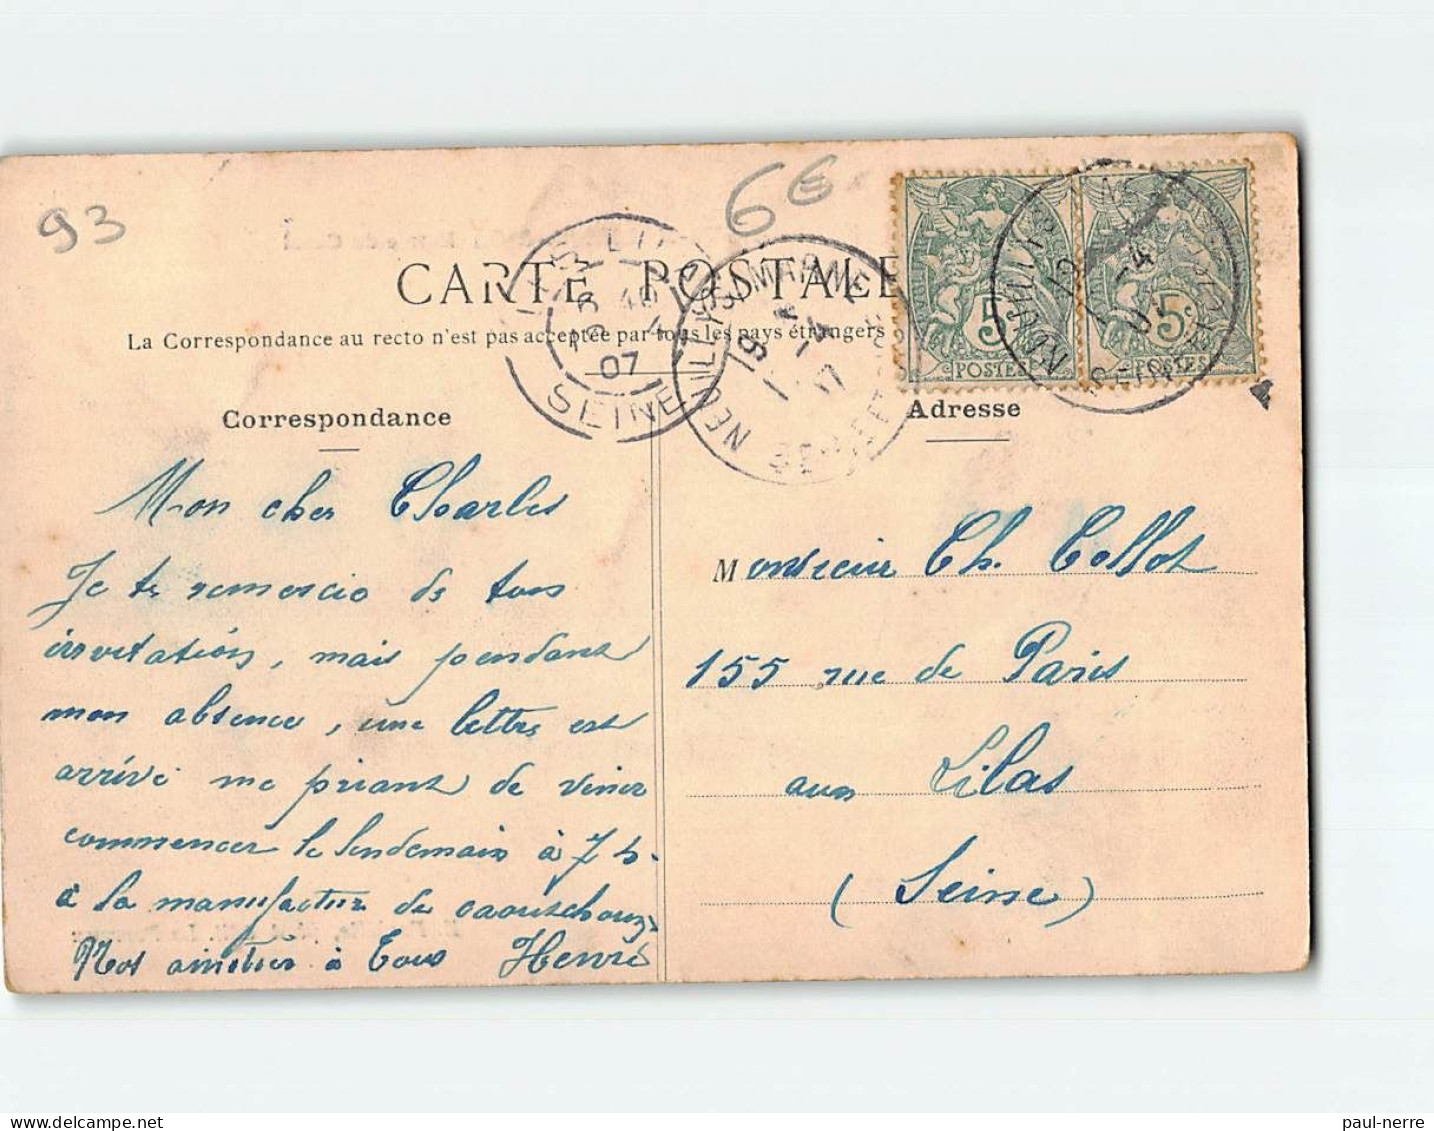 93
6€
CARTE POSTALE
La Correspondance au recto n'est pas acceptée par tous les pays étrangers
LES LILAS
4
07
SEINE
NEUILLY S/ MARNE
19
07
SEINE-ET-OISE
5c
POSTES
5c
POSTES
Correspondance
Adresse
Mon cher Charles
Je te remercie de tous
invitations, mais pendant
mon absence, une lettre est
arrivé me priant de venir
commencer le lendemain à 7 h.
à la manufacture de caoutchouc
Nos amitiés à Tous Henri
Monsieur Ch. Collot
155 rue de Paris
aux Lilas
(Seine)
paul-nerre